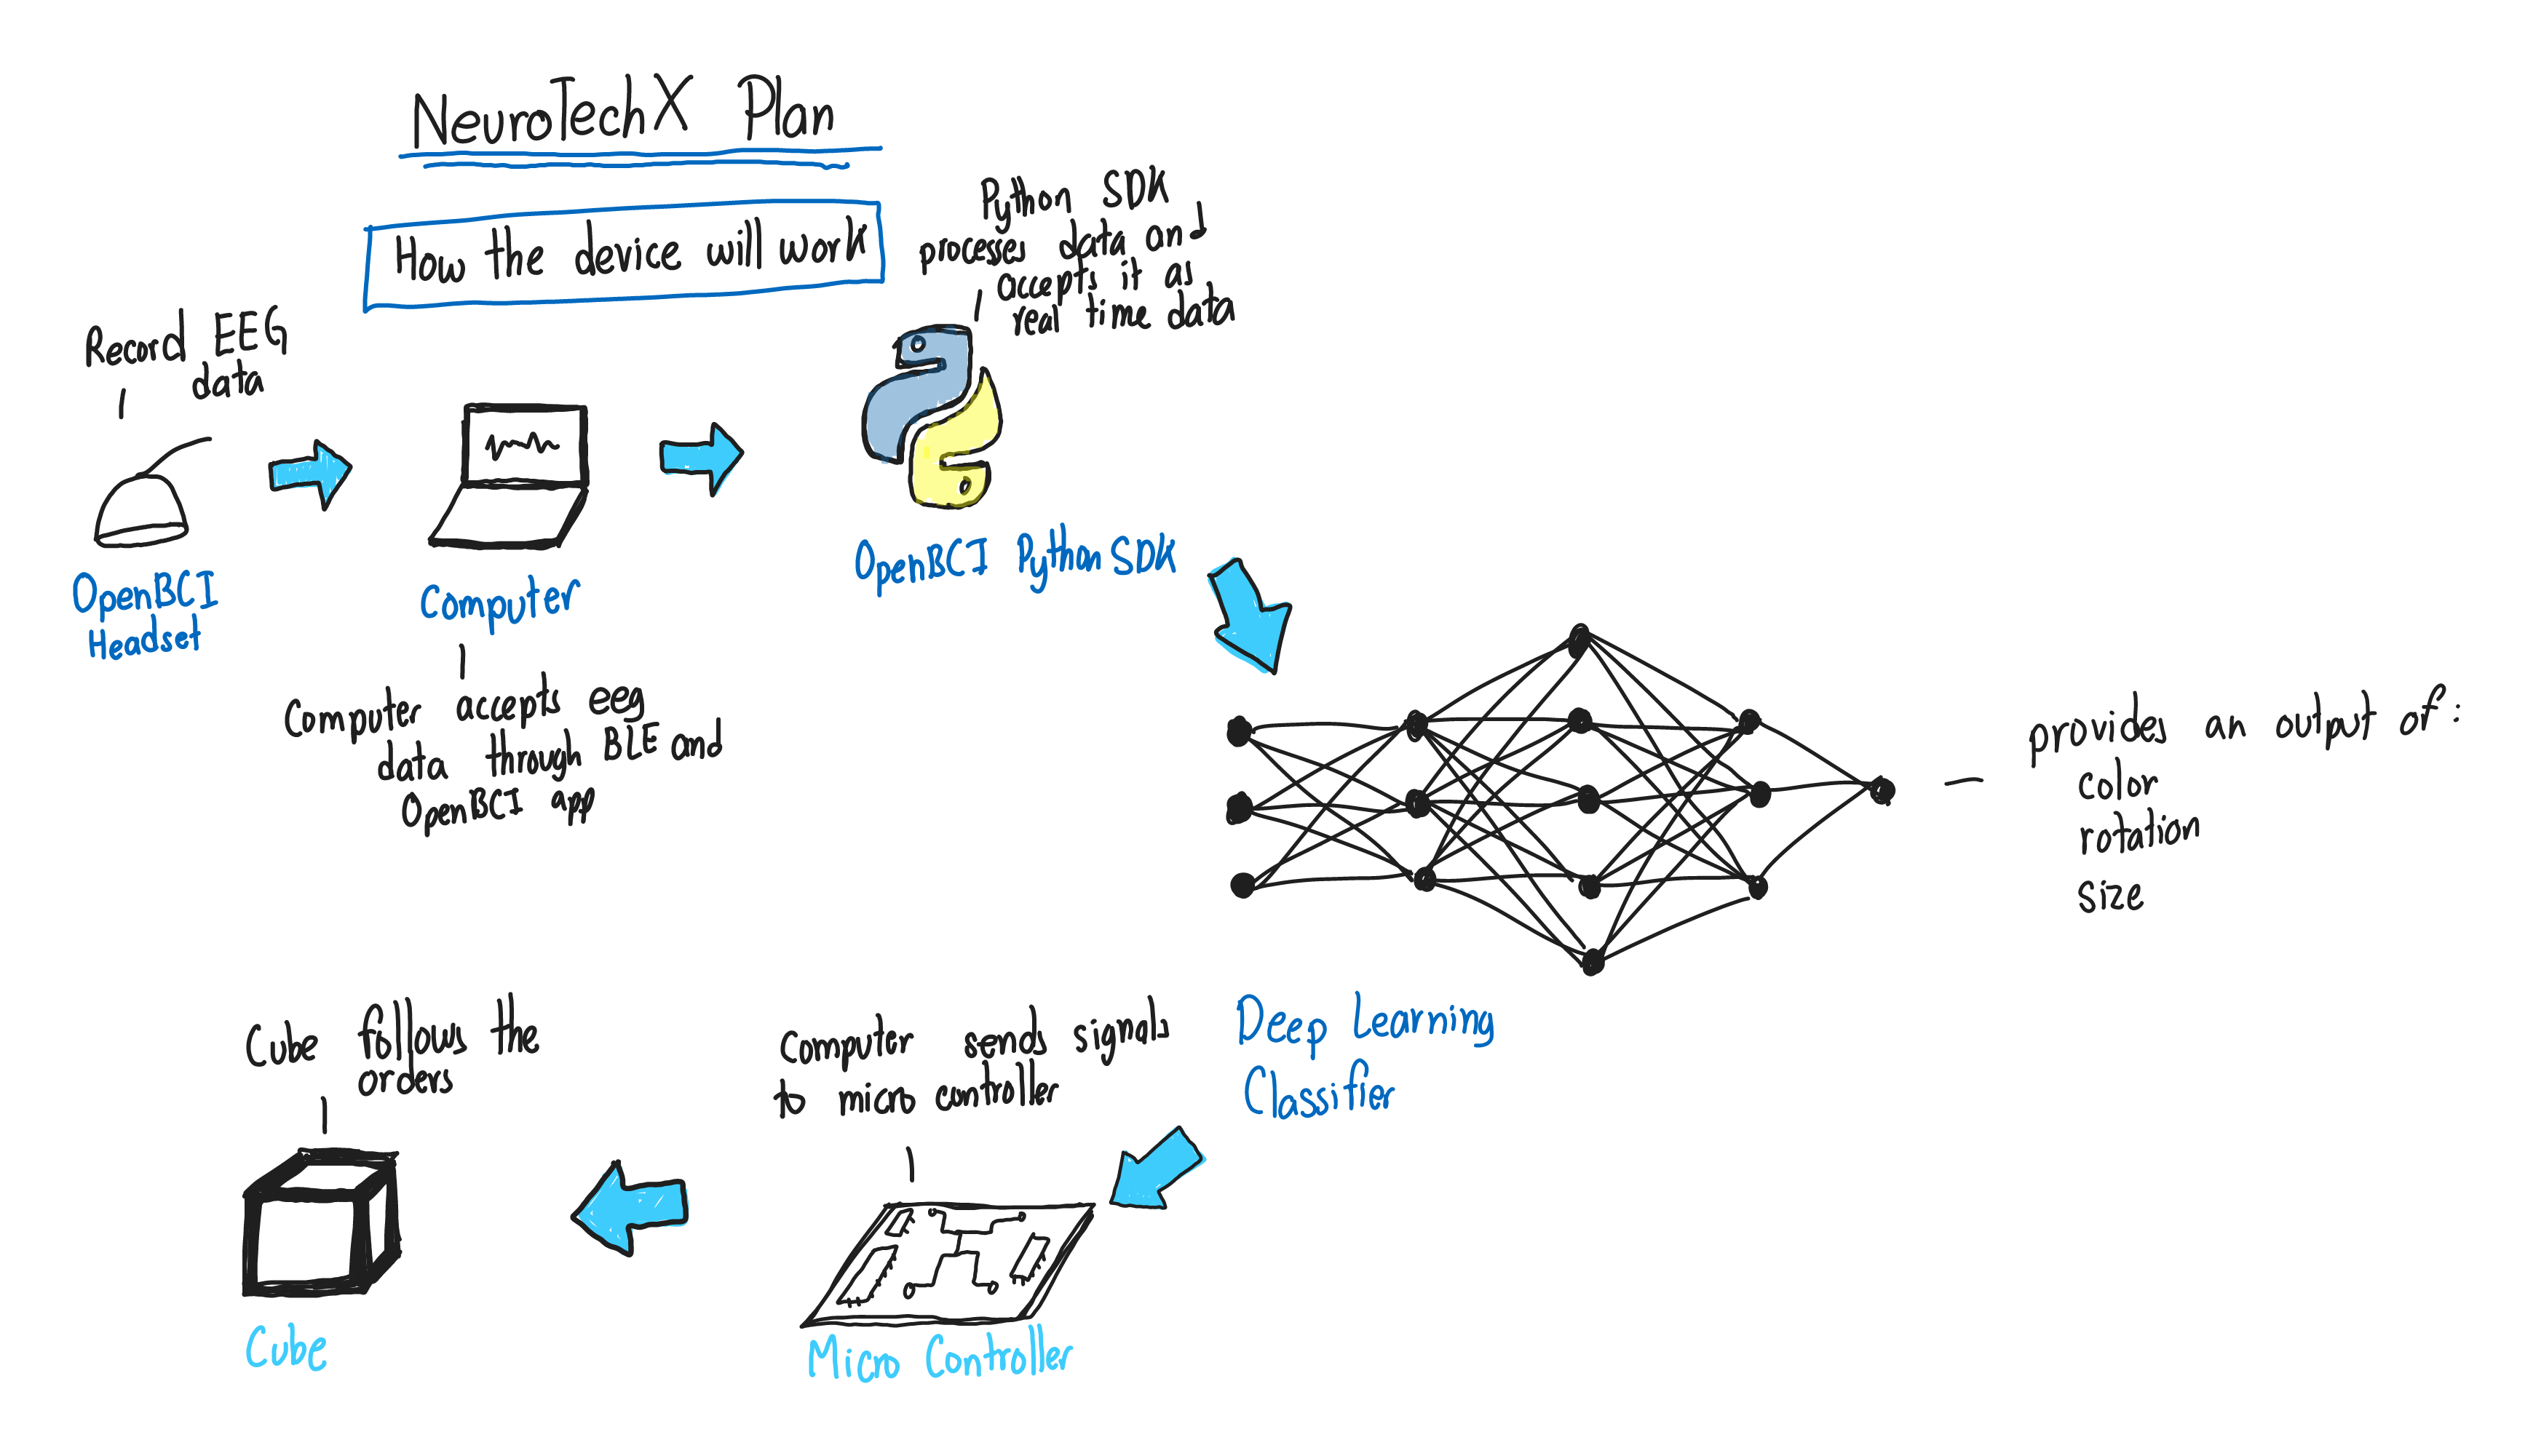 NeuroTechX Plan
How the device will work
Record EEG
data
OpenBCI
Headset
Computer
Computer accepts eeg
data through BLE and
OpenBCI app
Python SDK
processes data and
accepts it as
real time data
OpenBCI Python SDK
provides an output of:
color
rotation
size
Deep Learning
Classifier
Computer sends signals
to micro controller
Micro Controller
Cube follows the
orders
Cube